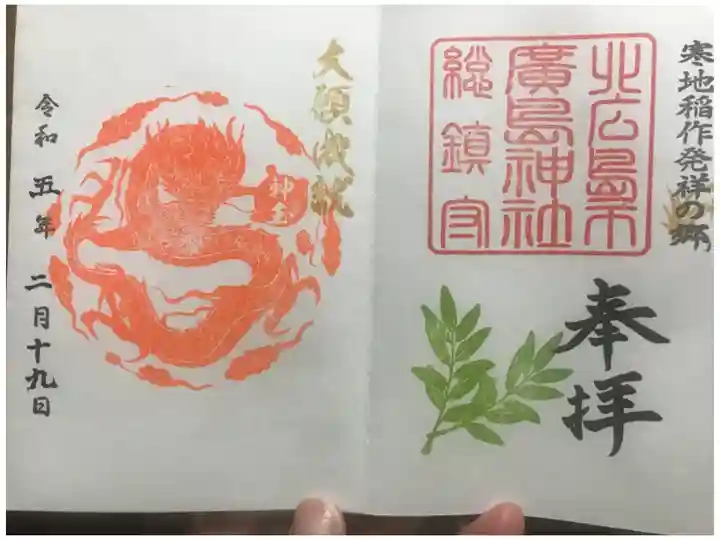 寒地稲作発祥の郷
北広島市
廣島神社
総鎮守
奉拝
大願成就
神玉
令和五年二月十九日